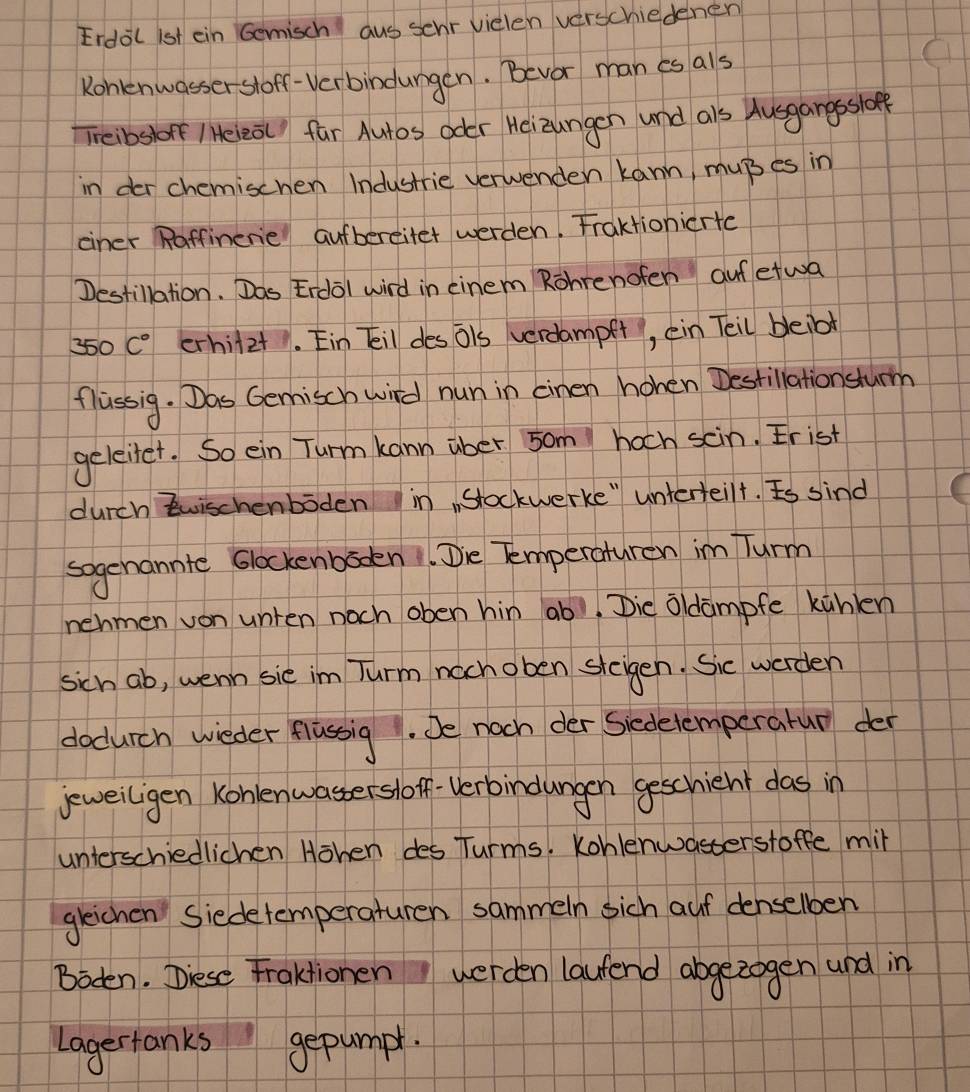 Erdöl ist ein Gemisch aus sehr vielen verschiedenen
Kohlenwasserstoff-Verbindungen. Bevor man es als
Treibstoff/Heizöl für Autos oder Heizungen und als Ausgangsstoff
in der chemischen Industrie verwenden kann, muß es in
einer Raffinerie aufbereitet werden. Fraktionierte
Destillation. Das Erdöl wird in einem Röhrenofen auf etwa
350 C° erhitzt. Ein Teil des Öls verdampft, ein Teil bleibt
flüssig. Das Gemisch wird nun in einen hohen Destillationsturm
geleitet. So ein Turm kann über 50m hoch sein. Er ist
durch Zwischenböden in „Stockwerke" unterteilt. Es sind
sogenannte Glockenböden. Die Temperaturen im Turm
nehmen von unten nach oben hin ab. Die Öldämpfe kühlen
sich ab, wenn sie im Turm nach oben steigen. Sie werden
dadurch wieder flüssig. Je nach der Siedetemperatur der
jeweiligen Kohlenwasserstoff-Verbindungen geschieht das in
unterschiedlichen Höhen des Turms. Kohlenwasserstoffe mit
gleichen Siedetemperaturen sammeln sich auf denselben
Böden. Diese Fraktionen werden laufend abgezogen und in
Lagertanks gepumpt.